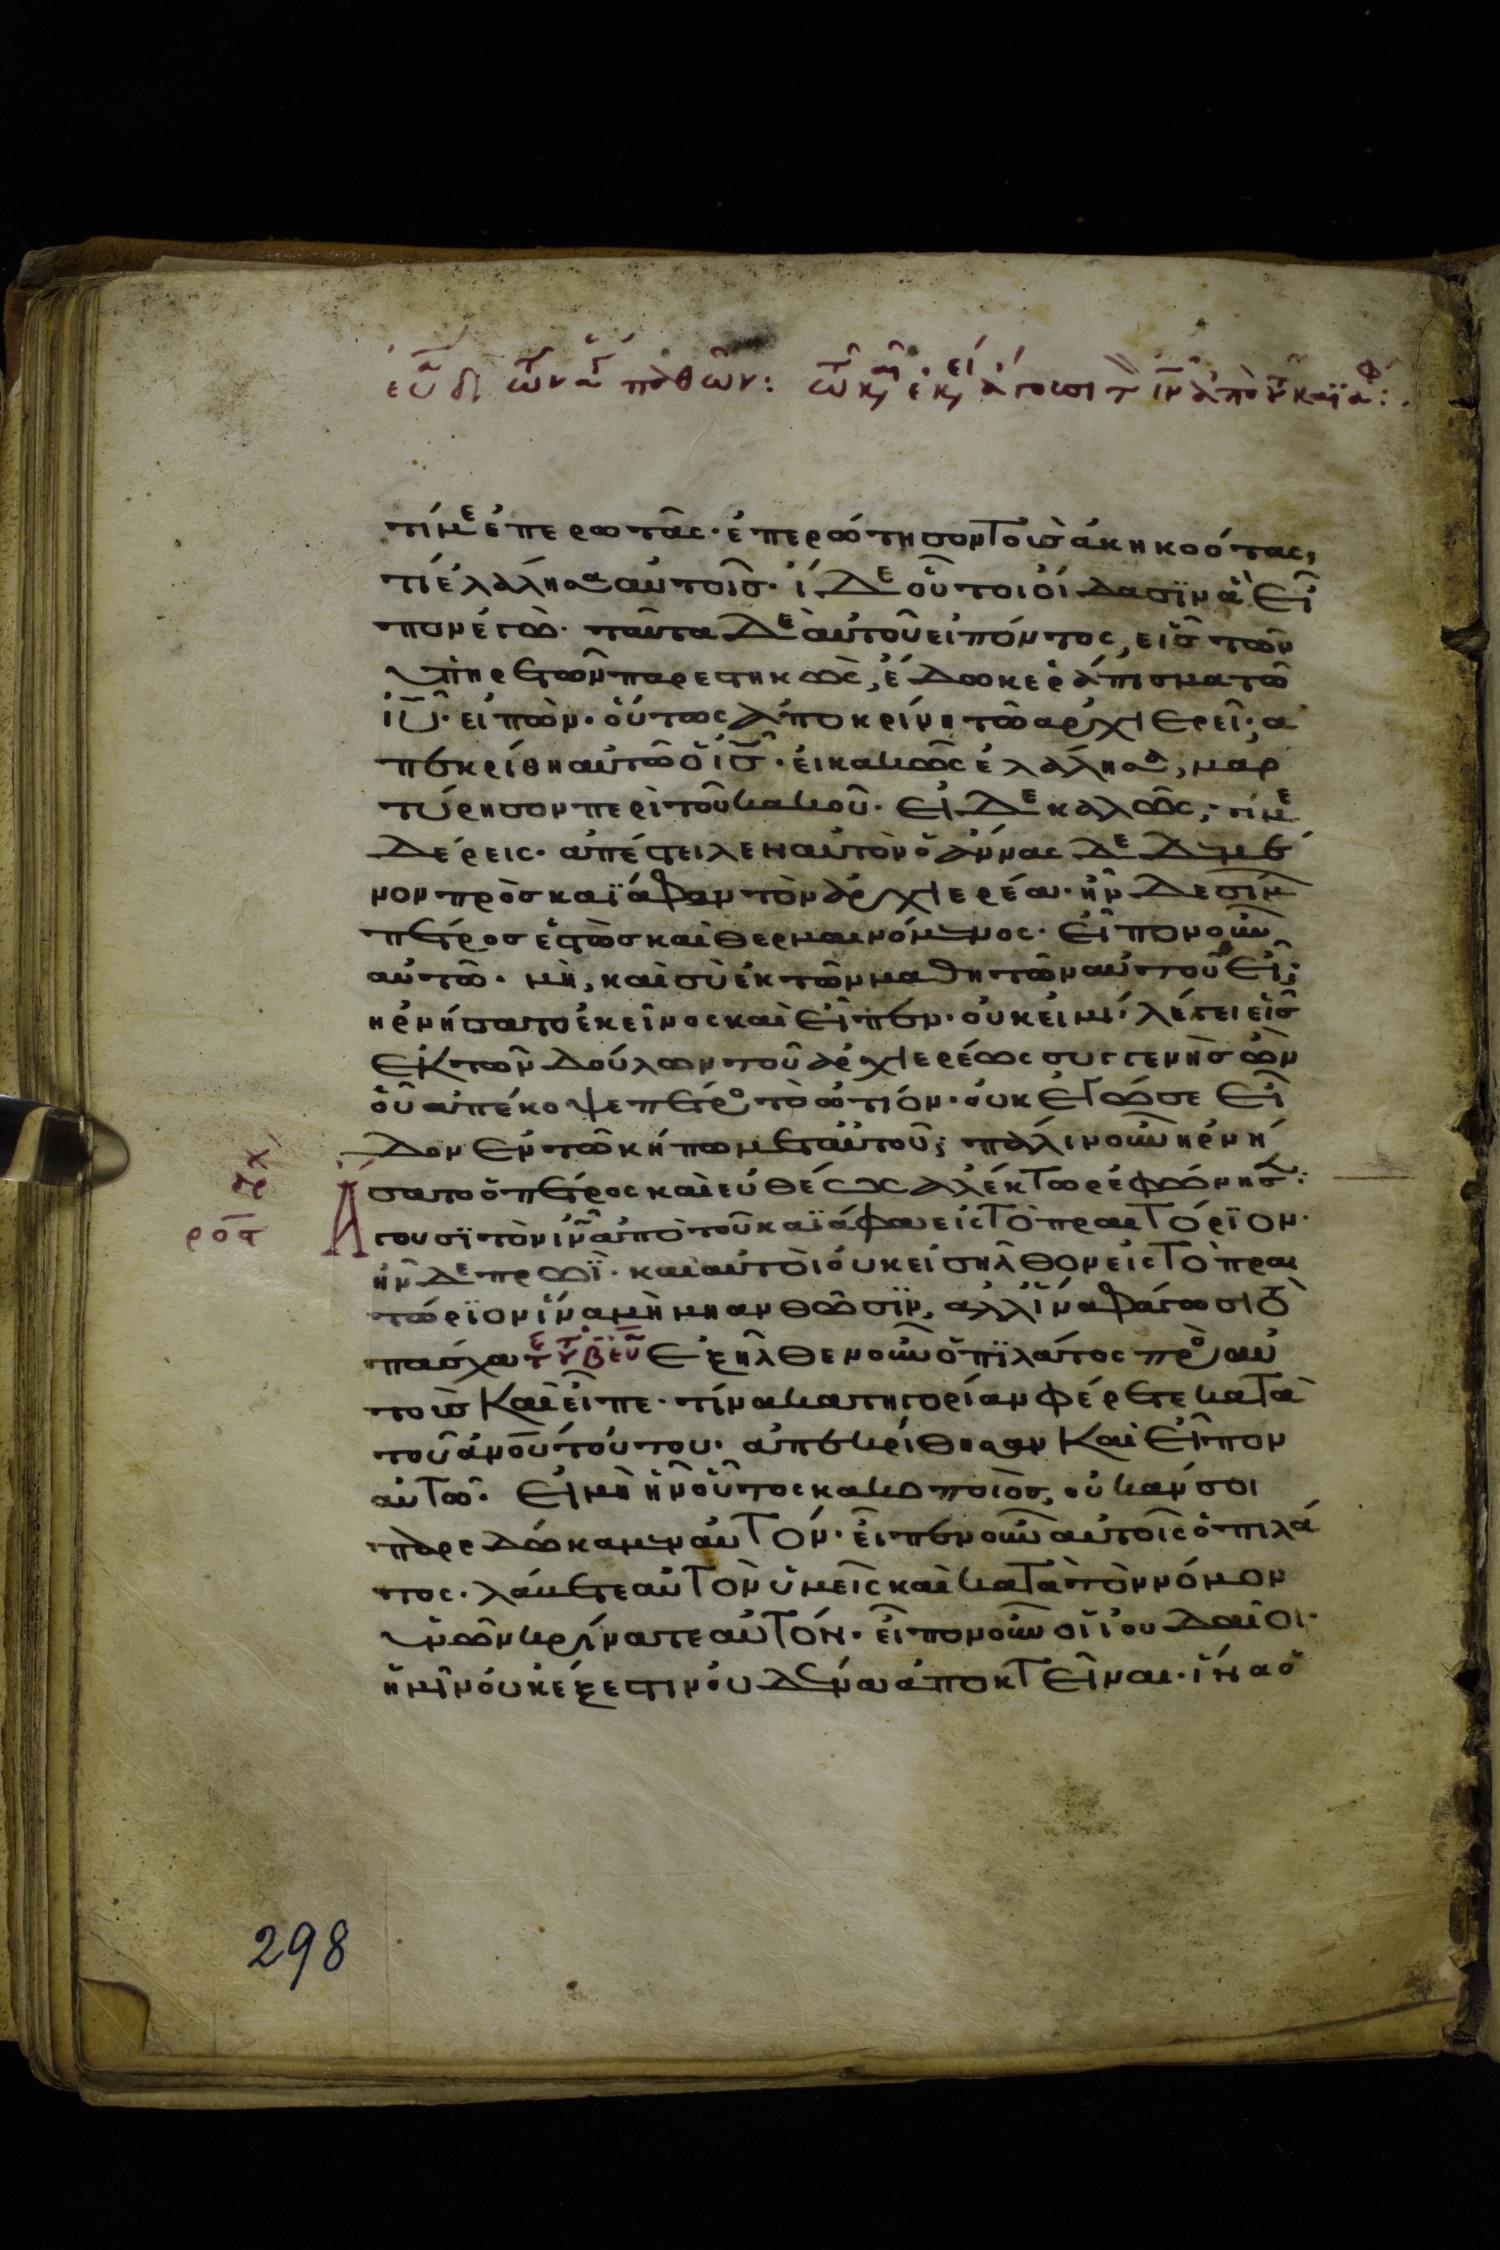 εὐ δ τῶν ἁγ παθῶν: τῶ κ, ἐκ, ἄγουσι τ ιν ἀπὸ τ καϊαφ:
τί με ἐπερωτᾶς· ἐπερώτησον τοὺς ἀκηκοότας,
τί ἐλάλησα αὐτοῖς· ἴδε οὗτοι οἴδασϊν ἃ εἶ
πον ἐγώ· ταῦτα δὲ αὐτοῦ εἰπόντος, εἷς τῶν
ὑπηρετῶν παρεστηκὼς, ἔδωκε ῥάπισμα τῶ
ιυ· εἰπὼν· οὕτως ἀποκρίνη τῶ ἀρχιερεῖ; ἀ
πεκρίθη αὐτῶ ὁ ις· εἰ κακῶς ἐλάλησα, μαρ
τύρησον περὶ τοῦ κακοῦ· εἰ δὲ καλῶς, τί με
δέρεις· ἀπέστειλεν αὐτὸν ὁ ἄννας δεδεμέ
νον πρὸς καϊάφαν τὸν ἀρχιερέα· ἦν δὲ σιμ
πέτρος ἑστὼς καὶ θερμαινόμενος· εἶπον οὖν
αὐτῶ· μὴ, καὶ σὺ ἐκ τῶν μαθητῶν αὐτοῦ εἶ;
ἠρνήσατο ἐκεῖνος καὶ εἶπεν· οὐκ εἰμί· λέγει εἷς
ἐκ τῶν δούλων τοῦ ἀρχιερέως συγγενὴς ὢν
οὗ ἀπέκοψε πέτρος τὸ ὠτίον· οὐκ ἐγώ σε εἶ
δον ἐν τῶ κήπω μετ αὐτοῦ; πάλιν οὖν ἠρνή
σατο ὁ πέτρος καὶ εὐθέως ἀλέκτωρ ἐφώνησ:
ρος ἀρχ Ἄγουσϊ τὸν ιν ἀπὸ τοῦ καϊάφα εἰς τὸ πραιτόρϊον·
ἦν δὲ πρωϊ· καὶ αὐτοὶ οὐκ εἰσῆλθον εἰς τὸ πραι
τώρϊον ἵνα μὴ μιανθῶσϊν, ἀλλ ἵνα φάγωσι τὸ
πάσχα Ἐξῆλθεν οὖν ὁ πϊλάτος πρὸς αὐ
τοὺς καὶ εἶπε· τίνα κατηγορίαν φέρετε κατὰ
τοῦ ανου τούτου· ἀπεκρίθησαν καὶ εἶπον
αὐτῶ· εἰ μὴ ἦν οὗτος κακοποιὸς, οὐκ ἄν σοι
παρεδώκαμεν αὐτόν· εἶπεν οὖν αὐτοῖς ὁ πιλά
τος· λάβετε αὐτὸν ὑμεῖς καὶ κατὰ τὸν νόμον
ὑμῶν κρίνατε αὐτόν· εἶπον οὖν οἱ ἰουδαῖοι·
ἡμῖν οὐκ ἔξεστιν οὐδένα ἀποκτεῖναι· ἵνα ὁ
298